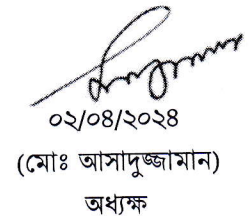 ০২/০৪/২০২৪
(মোঃ আসাদুজ্জামান)
অধ্যক্ষ